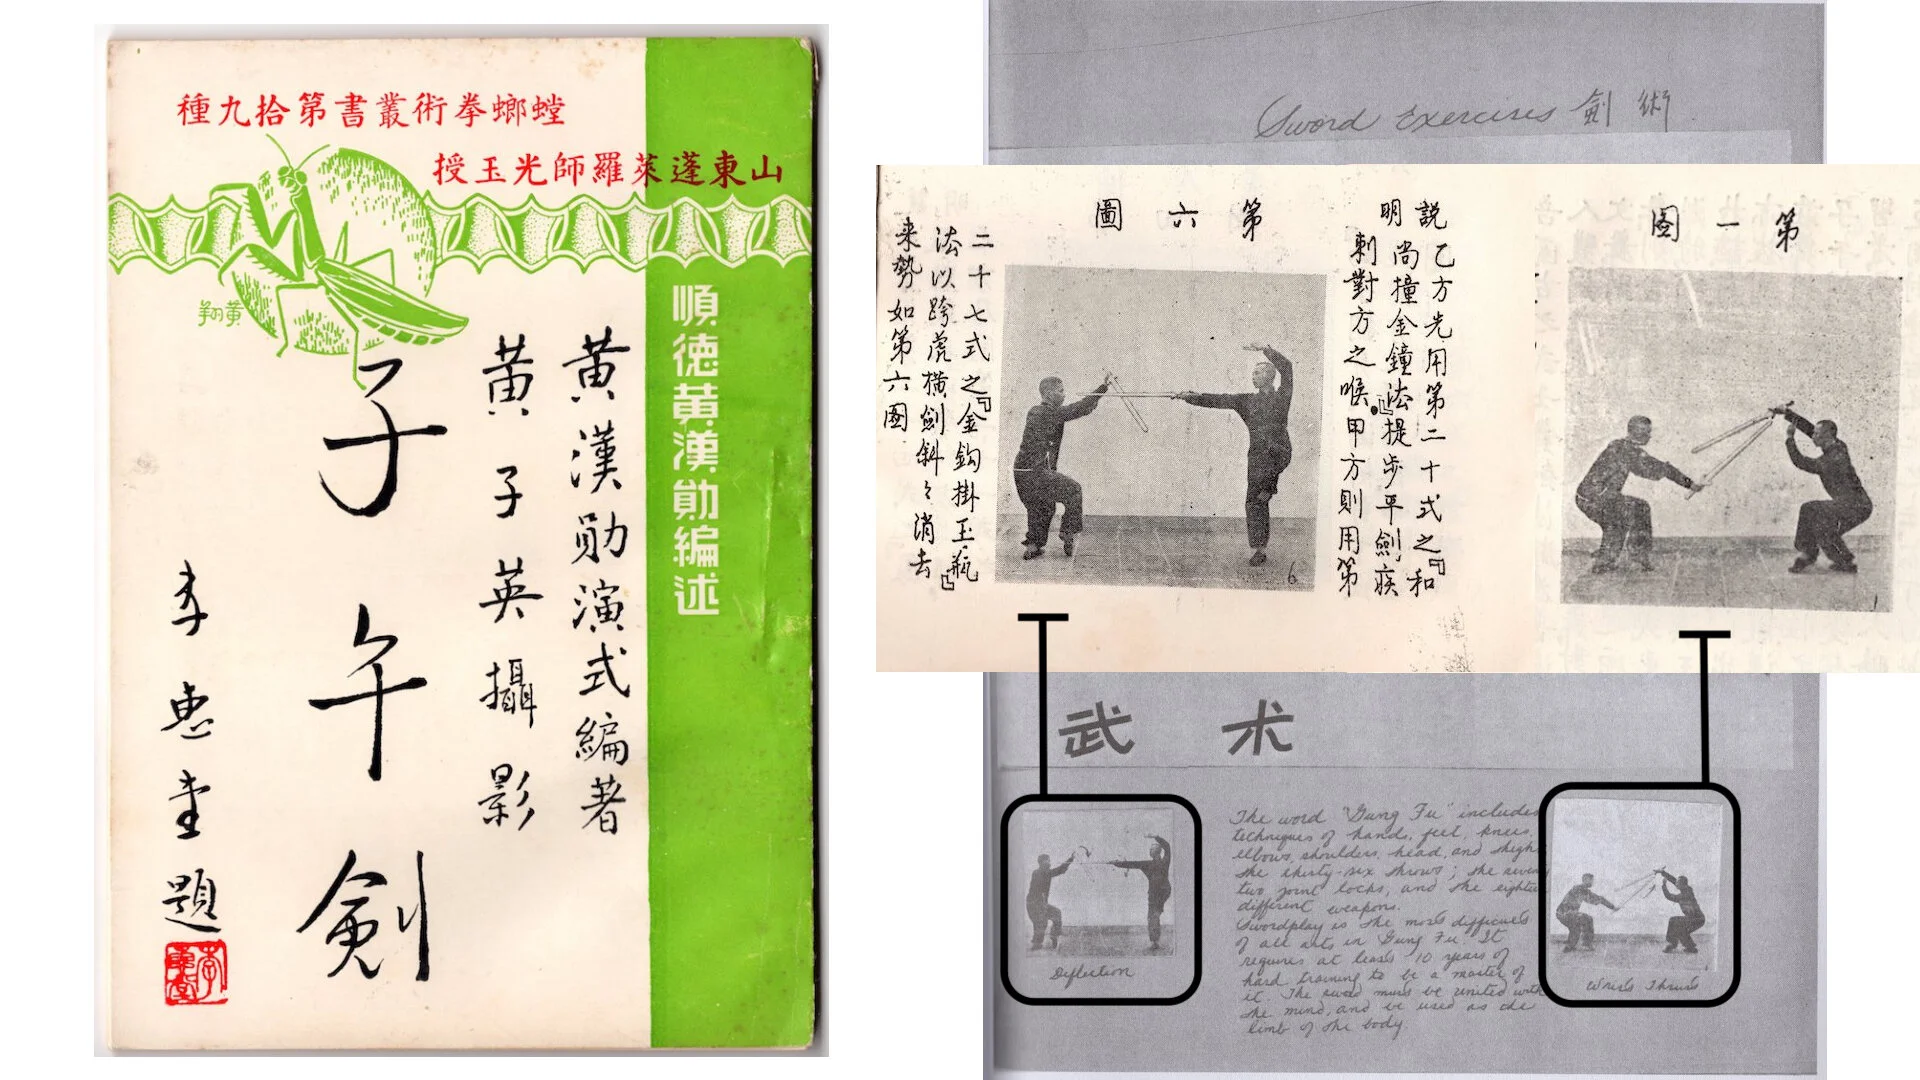 種九拾第書叢術拳螂螳
授玉光師羅萊蓬東山
順德黃漢勛編述
黃漢勛演式編著
黃子英攝影
子午劍
李惠堂題
翔黃
Sword Exercises 劍術
圖一第
說明
乙方先用第二十式之『和
尚撞金鐘法』提步平劍疾
刺對方之喉甲方則用第
圖六第
二十七式之『金鈎掛玉瓶』
法以跨虎橫劍斜々消去
来勢如第六圖
6
1
武 术
The word "Gung Fu" includes
techniques of hand, feet, knees,
elbows, shoulders, head, and thigh
the thirty-six throws; the seven
two joint locks, and the eighte
different weapons.
Swordplay is the most difficult
of all arts in "Gung Fu" It
requires at least 10 years of
hard training to be a master of
it The sword must be united with
the mind, and be used as the
limb of the body
Deflection
Wrist Thrust